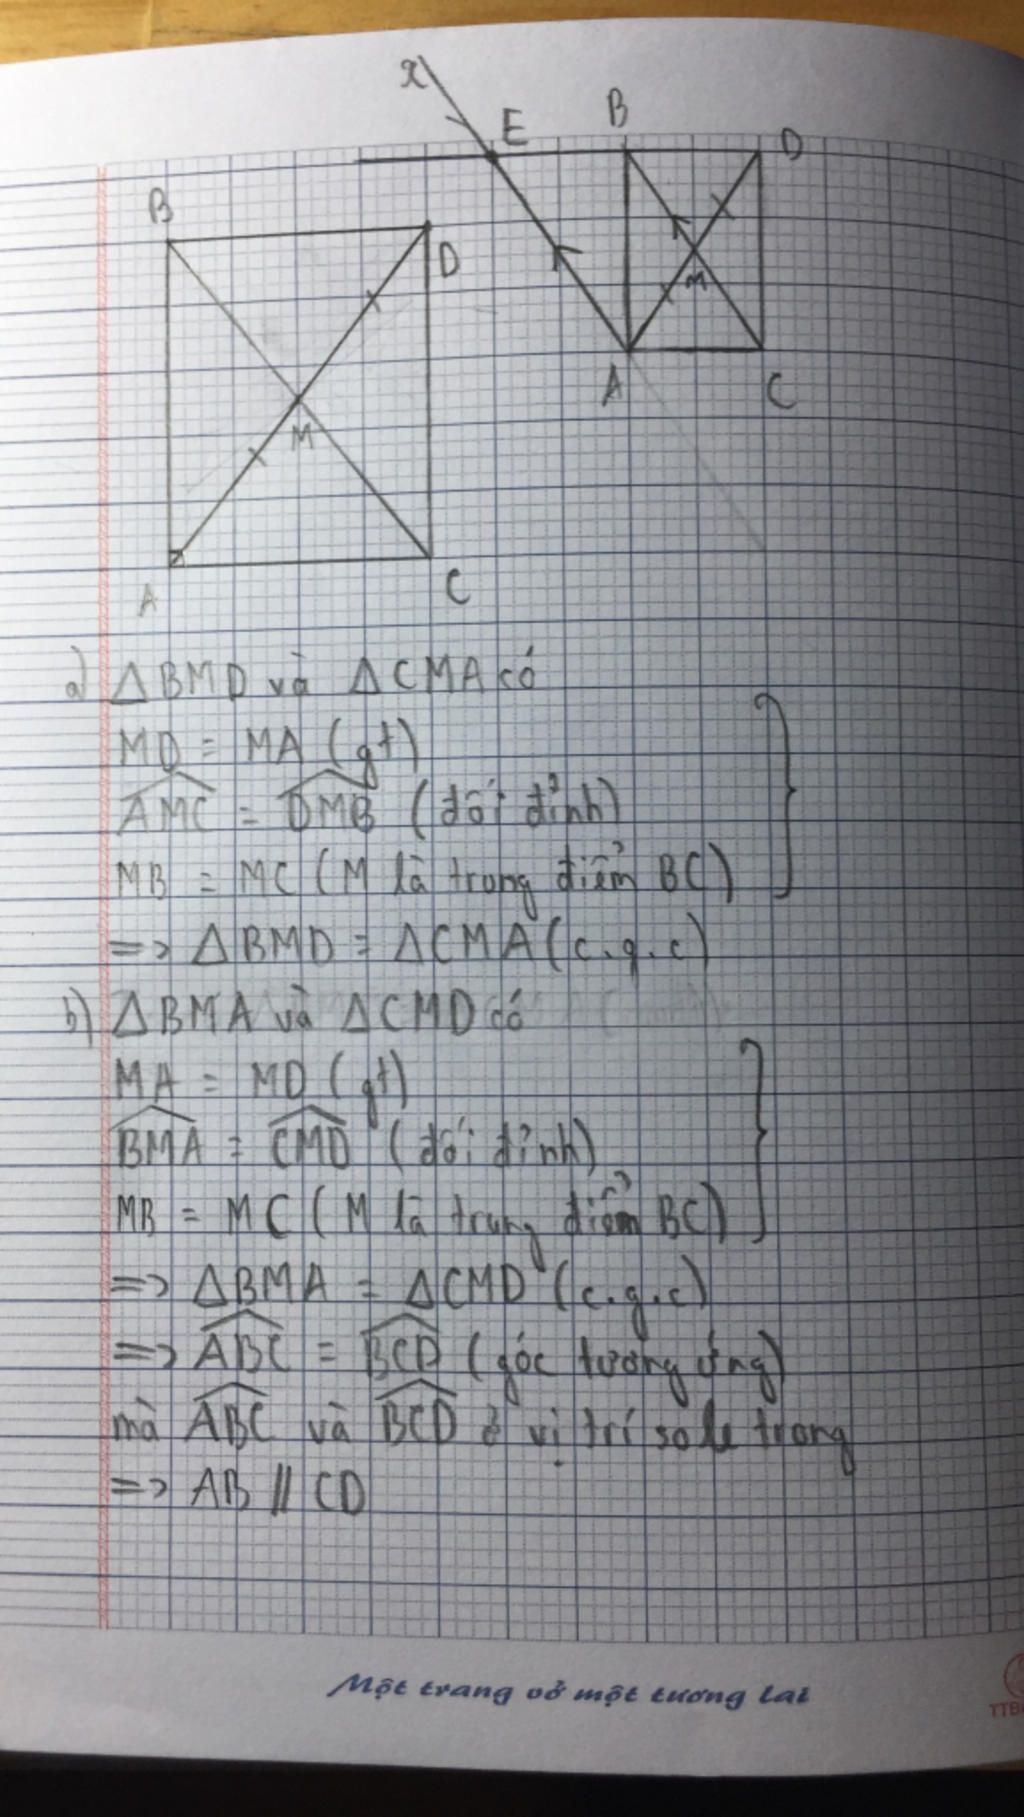 x
E
B
D
B
D
M
M
A
C
A
C
a) ΔBMD và ΔCMA có
MD = MA (gt)
\widehat{AMC} = \widehat{DMB} (đối đỉnh)
MB = MC (M là trung điểm BC)
=> ΔBMD = ΔCMA (c.g.c)
b) ΔBMA và ΔCMD có
MA = MD (gt)
\widehat{BMA} = \widehat{CMD} (đối đỉnh)
MB = MC (M là trung điểm BC)
=> ΔBMA = ΔCMD (c.g.c)
=> \widehat{ABC} = \widehat{BCD} (góc tương ứng)
mà \widehat{ABC} và \widehat{BCD} ở vị trí so le trong
=> AB // CD
Một trang vở một tương lai